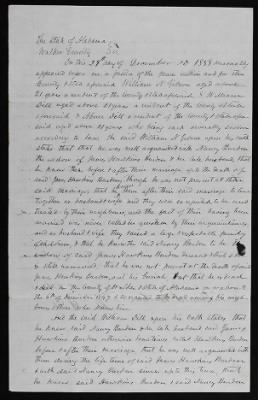 The State of Alabama
Walker County
On the 28th day of December AD 1888 personally
appeared before me a justice of the peace within and for the
County & State aforesaid William N Gibson aged above
21 years a resident of the County & State aforesaid & William
Dill aged above 21 years a resident of the County & State
aforesaid & Abner Dill a resident of the County & State afore-
said aged above 21 years who being each severally sworn
according to law the said William N Gibson upon his oath
states that that he was well acquainted with Nancy Burden
the widow of James Hawkins Burden & her late husband that
he knew them before & after their marriage up to the death of
said James Hawkins Burden though he was not present at their
said marriage that he knew them after their said marriage to live
together as husband & wife and they were recognized to be and
treated by their neighbors and the fact of their having been
married was never called in question by their acquaintances
and as husband & wife they raised a large respectable family
of children & that he knows the said Nancy Burden to be the
widow of said James Hawkins Burden
James Hawkins Burden
in the County of Walker & State of Alabama on or about
the 6th of December 1887

And the said William Dill upon his oath states that
he knew said Nancy Burden & her late husband James
Hawkins Burden otherwise sometimes called Hawkins Burden
before & after their marriage that he was well acquainted with
them during the life time of said James Hawkins Burden
& with said Nancy Burden since up to this time that
he knew said Hawkins Burden & said Nancy Burden